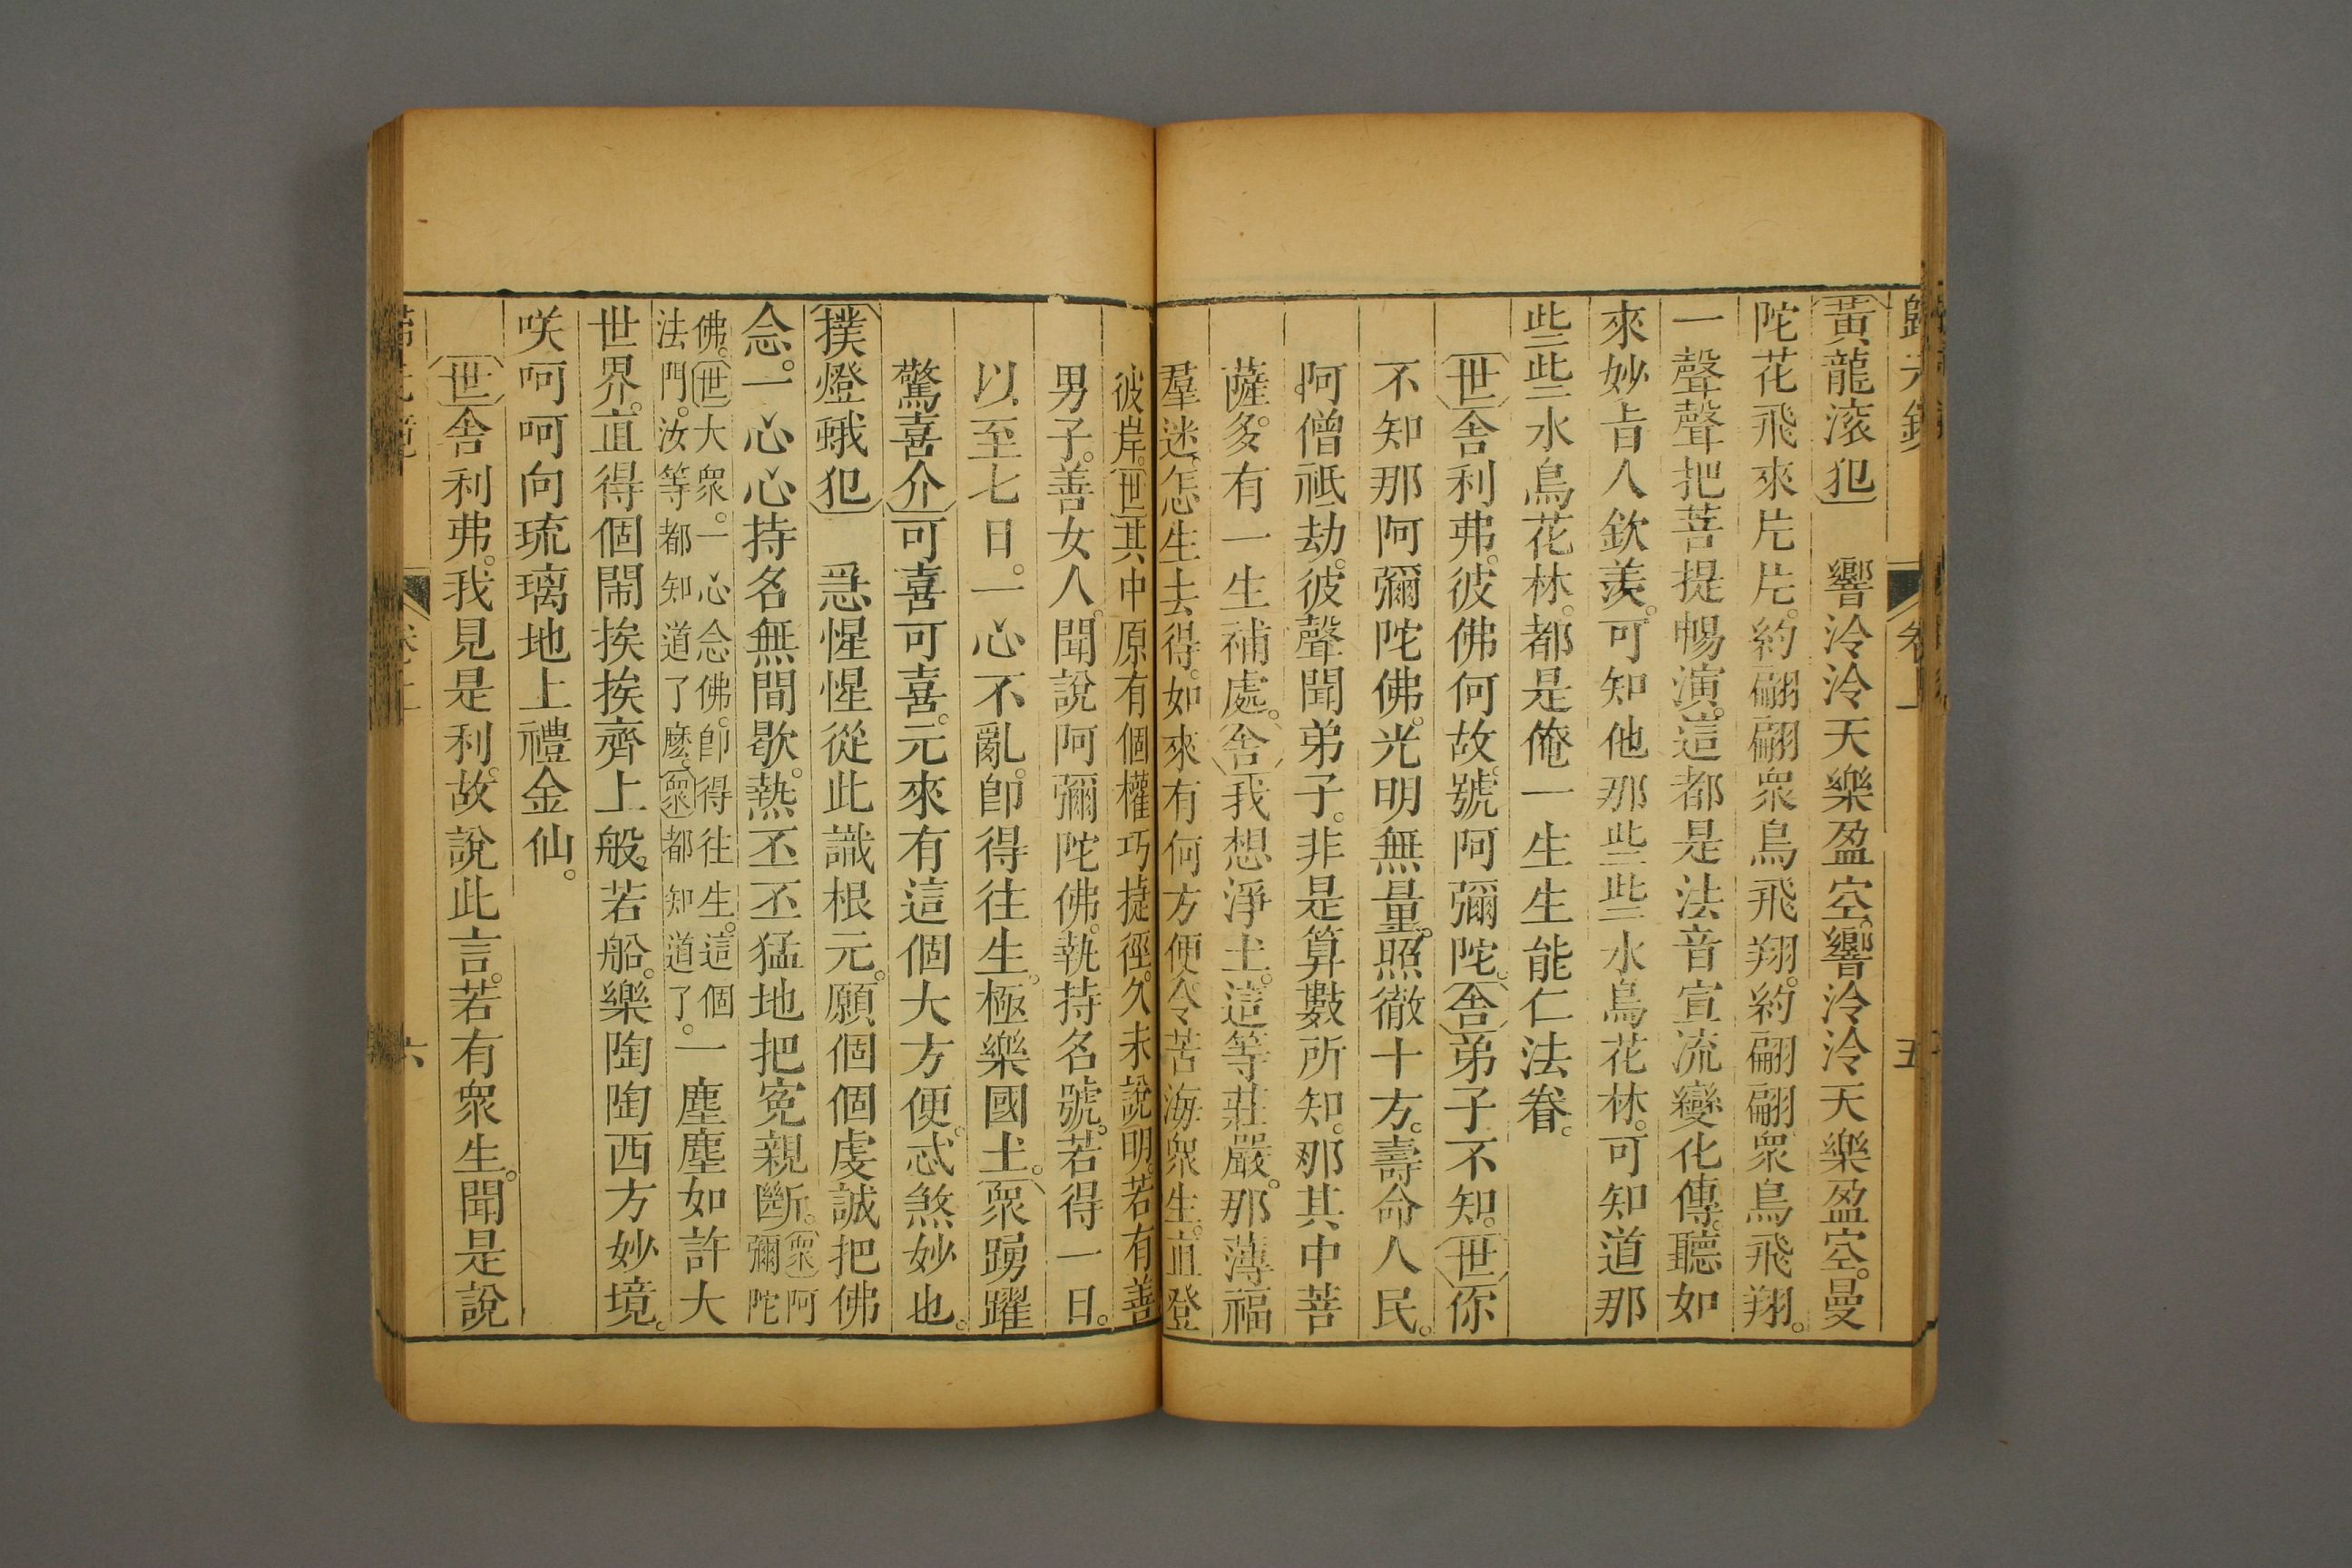 歸元鏡 卷上 五
黃龍滚犯 響泠泠天樂盈空。響泠泠天樂盈空。曼
陀花飛來片片。約翩翩衆鳥飛翔。約翩翩衆鳥飛翔。
一聲聲把菩提暢演。這都是法音宣流變化傳。聽如
來妙㫖人欽羨。可知他那些些水鳥花林。可知道那
些些水鳥花林。都是俺一生生能仁法眷。
世舍利弗。彼佛何故。號阿彌陀。舍弟子不知。世你
不知那阿彌陀佛。光明無量。照徹十方。壽命人民。
阿僧祇劫。彼聲聞弟子。非是算數所知。那其中菩
薩。多有一生補處。舍我想淨土。這等莊嚴。那薄福
羣迷。怎生去得。如來有何方便。令苦海衆生。直登
彼岸。世其中原有個權巧捷徑。久未說明。若有善
男子。善女人。聞說阿彌陀佛。執持名號。若得一日。
以至七日。一心不亂。卽得往生。極樂國土。衆踴躍
驚喜介可喜可喜。元來有這個大方便。忒煞妙也。
撲燈蛾犯 㤙惺惺從此識根元。願個個虔誠把佛
念。一心心持名無間歇。熱丕丕猛地把寃親斷。衆阿彌陀
佛。世大衆。一心念佛。卽得往生。這個
法門。汝等都知道了麽。衆都知道了。一塵塵如許大
世界。直得個鬧挨挨齊上般若船。樂陶陶西方妙境。
咲呵呵向琉璃地上禮金仙。
世舍利弗。我見是利。故說此言。若有衆生。聞是說
六